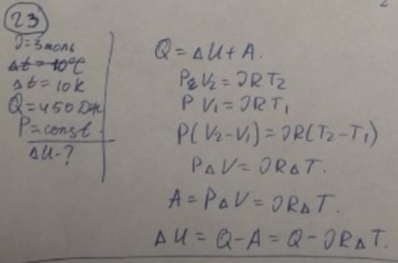 23
ν=3 моль
Δt=10°C
Δt=10K
Q=450 Дж
P=const.
ΔU-?
Q=ΔU+A.
PV₂=νRT₂
PV₁=νRT₁
P(V₂-V₁)=νR(T₂-T₁)
PΔV=νRΔT.
A=PΔV=νRΔT.
ΔU=Q-A=Q-νRΔT.